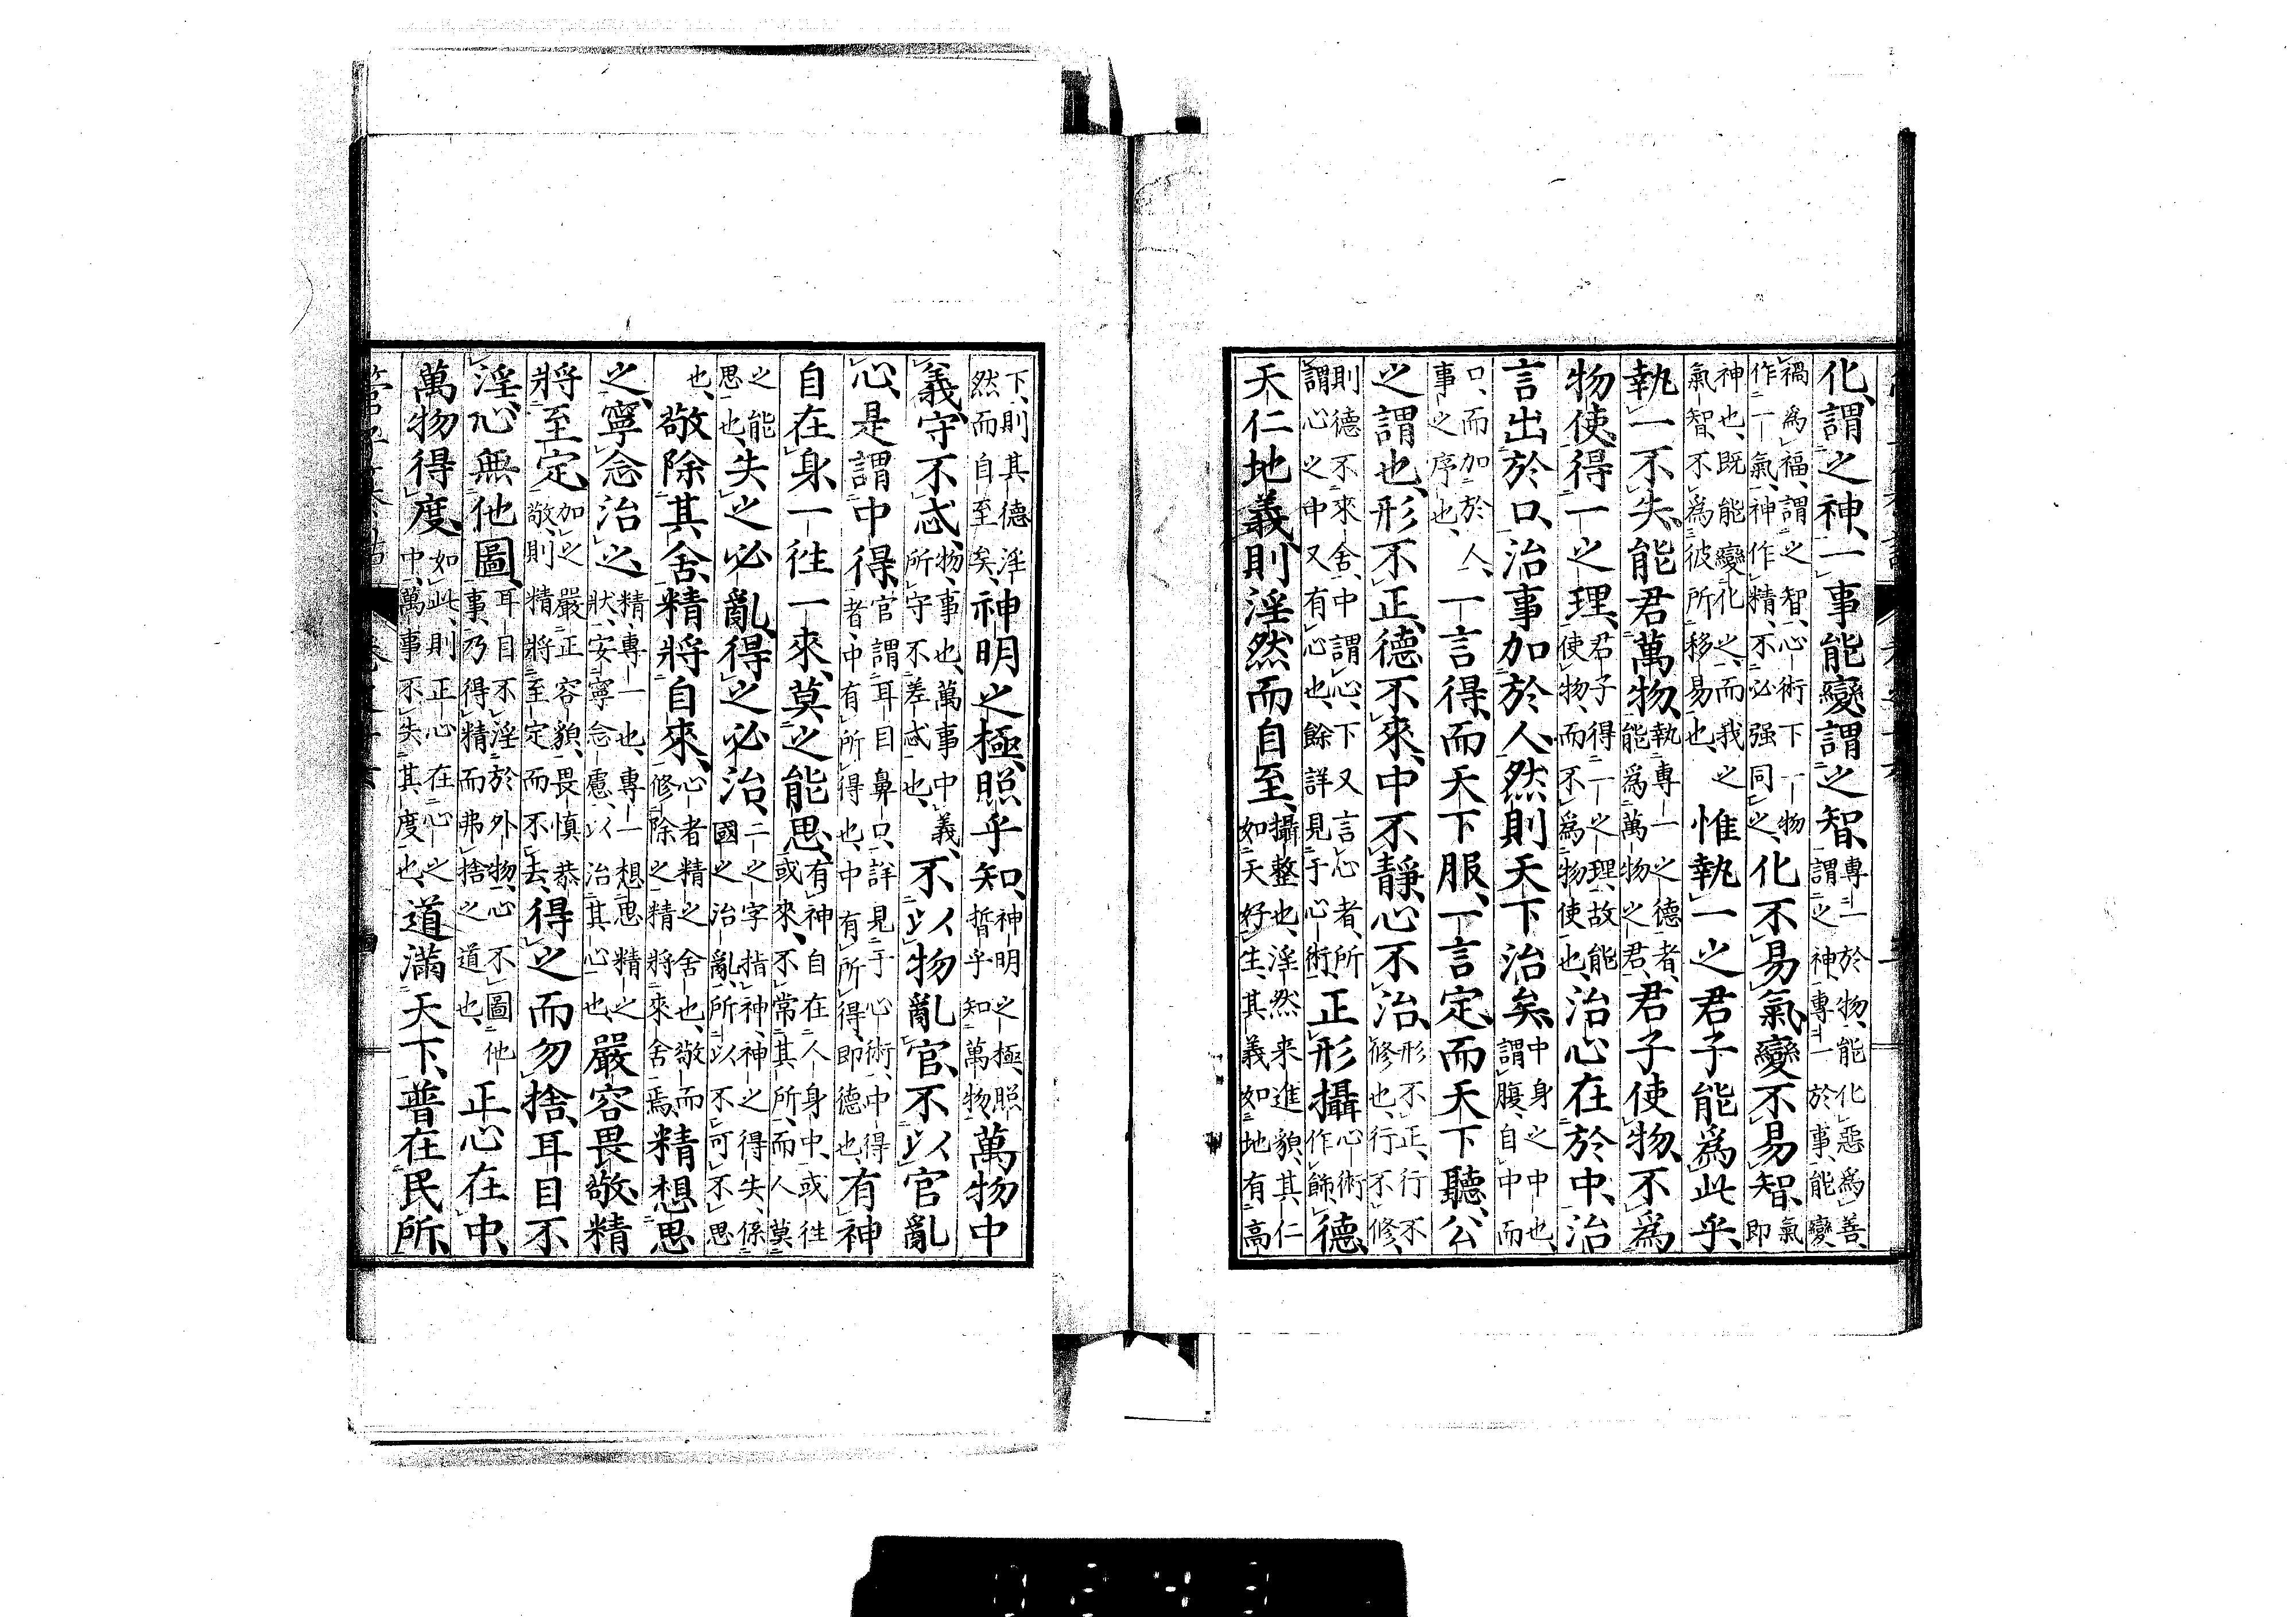 化、謂之神、一事能變、謂之智、專一於物、能化惡爲善、
謂之神、專一於事、能變
禍爲福、謂之智、心術下一物
作一氣、神作精、不必强同之、化不易氣、變不易智、氣
即
神也、既能變化之、而我之
氣智、不爲彼所移易也、惟執一之君子能爲此乎、
執一不失、能君萬物、執專一之德者、
能爲萬物之君、君子使物、不爲
物使、得一之理、君子得一之理、故能
使物、而不爲物使也、治心在於中、治
言出於口、治事加於人、然則天下治矣、中身之中也、
謂腹、自中而
口、而加於人、
事之序也、一言得、而天下服、一言定、而天下聽、公
之謂也、形不正、德不來、中不靜、心不治、形不正、行不
修也、行不修、
則德不來舍、中謂心、下又言心者、所
謂心之中又有心也、餘詳見于心術、正形攝德、心術
作飾
天仁地義、則淫然而自至、攝整也、淫然来進貌、其仁
如天好生、其義如地有高
下、則其德淫
然而自至矣、神明之極、照乎知、神明之極、照
晢乎知萬物、萬物中
義、守不忒、物、事也、萬事中義、
所守不差忒也、不以物亂官、不以官亂
心、是謂中得、官謂耳目鼻口、詳見于心術、中得
者、中有所得也、中有所得、即德也、有神
自在身、一往一來、莫之能思、有神自在人身中、或往
或來、不常其所、而人莫
之能
思也、失之必亂、得之必治、二之字指神、神之得失、係
國之治亂、所以不可不思
也、敬除其舍、精將自來、心者精之舍也、敬而
修除之、精將來舍焉、精想思
之、寧念治之、精、專一也、專一想思精之
狀、安寧念慮、以治其心也、嚴容畏敬、精
將至定、加之嚴正容貌、畏慎恭
敬、則精將至定而不去、得之而勿捨、耳目不
淫、心無他圖、耳目不淫於外物、心不圖他
事、乃得精而弗捨之道也、正心在中、
萬物得度、如此、則正心在心之
中、萬事不失其度也、道滿天下、普在民所、